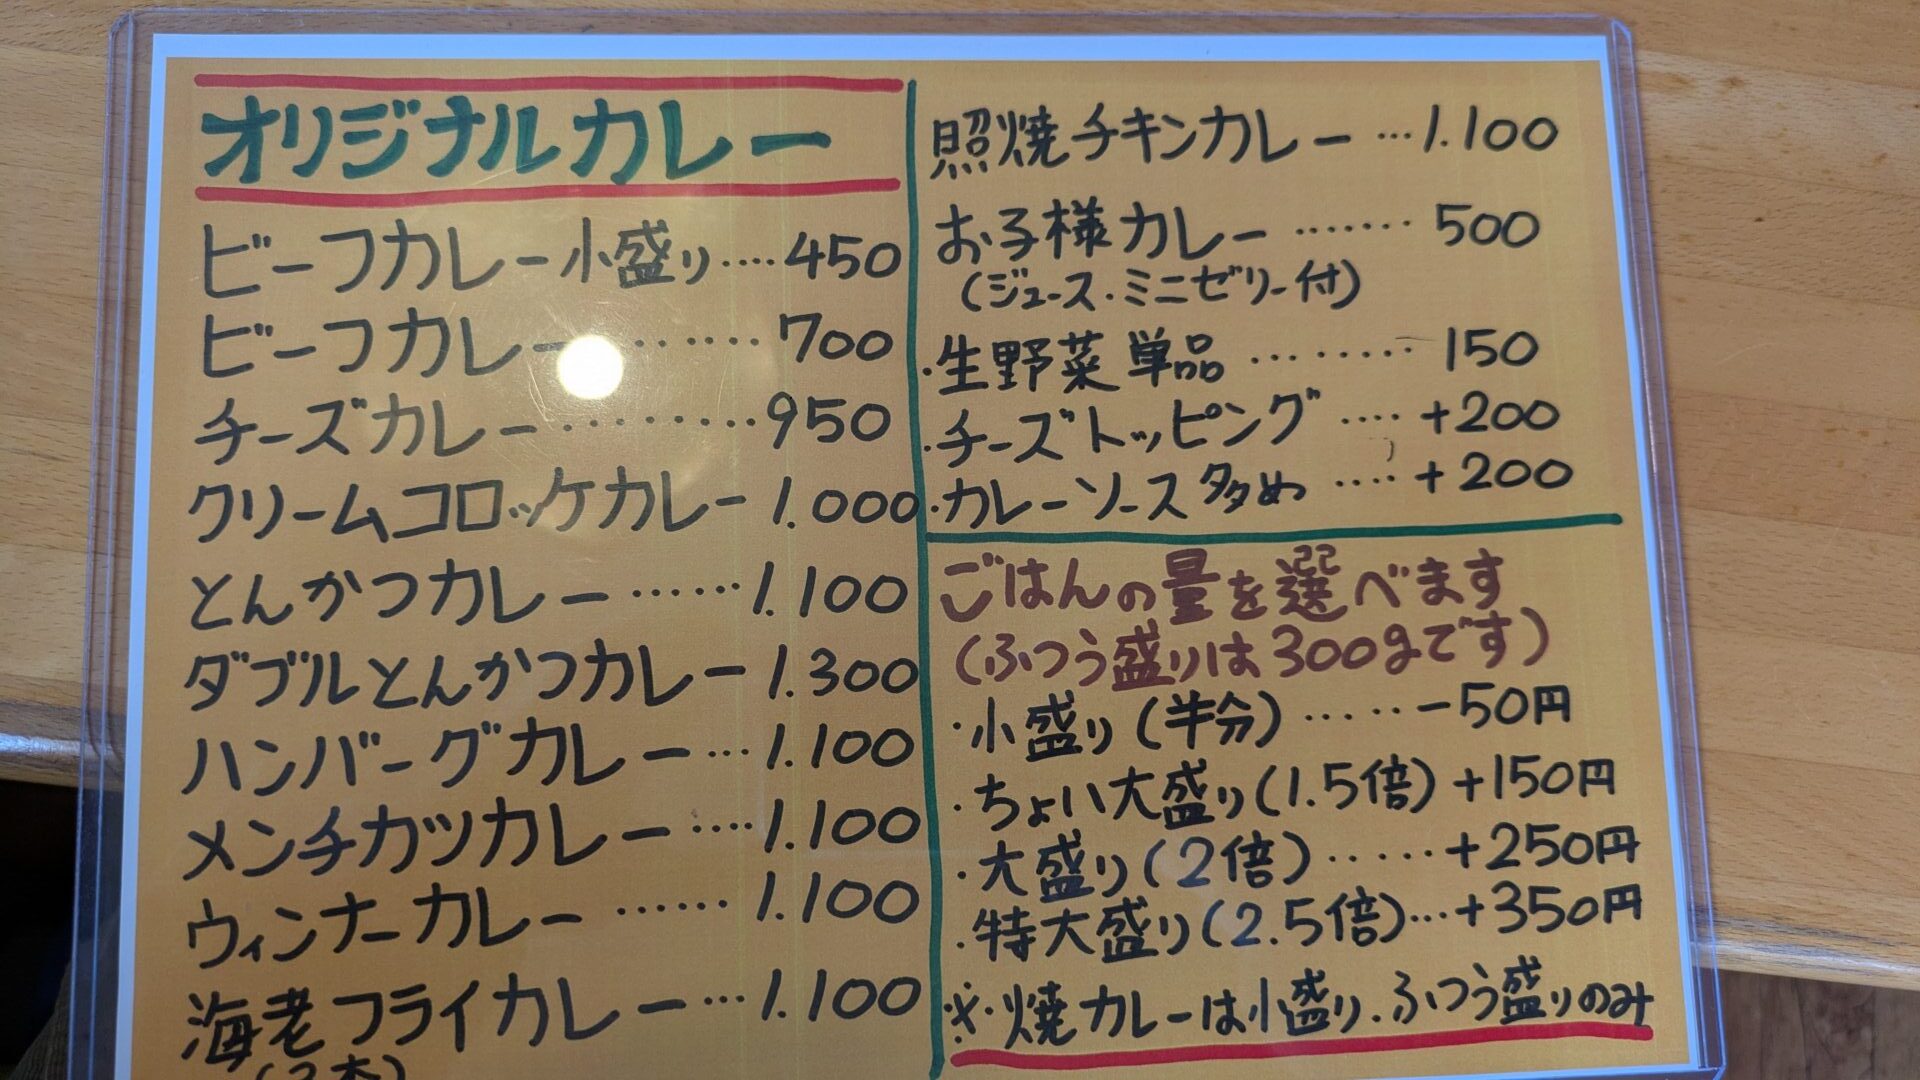 オリジナルカレー
ビーフカレー小盛り····450
ビーフカレー········700
チーズカレー·········950
クリームコロッケカレー 1.000
とんかつカレー······1.100
ダブルとんかつカレー 1.300
ハンバーグカレー···1.100
メンチカツカレー····1.100
ウィンナーカレー······1.100
海老フライカレー···1.100
照焼チキンカレー···1.100
お子様カレー·······500
(ジュース·ミニゼリー付)
·生野菜単品········150
·チーズトッピング····+200
·カレーソース多め····+200
ごはんの量を選べます
(ふつう盛りは300gです)
·小盛り(半分)······-50円
·ちょい大盛り(1.5倍)+150円
·大盛り(2倍)······+250円
·特大盛り(2.5倍)···+350円
※·焼カレーは小盛り.ふつう盛りのみ